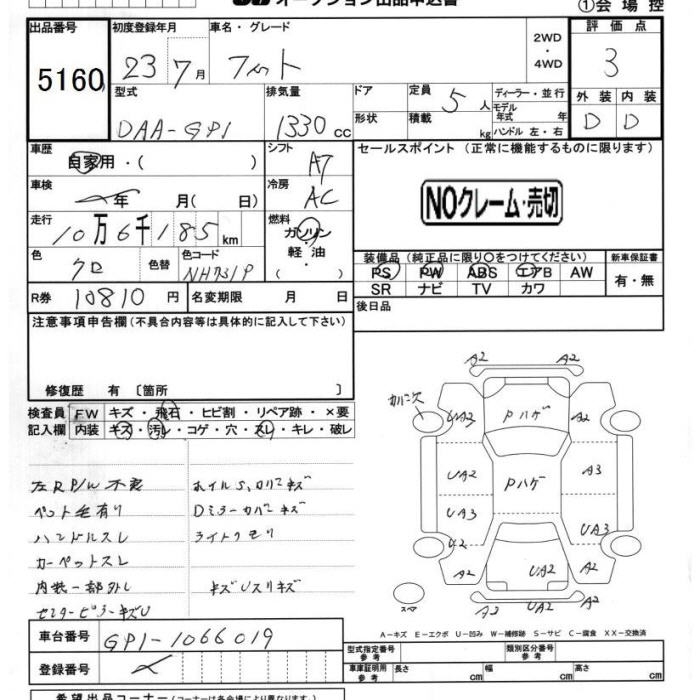 オークション出品申込書
①会場控
出品番号
5160
初度登録年月
23 7月
車名・グレード
フィット
2WD
・
4WD
評価点
3
型式
DAA-GP1
排気量
1330 cc
ドア
形状
定員 5 人
積載 kg
ディーラー・並行
モデル
年式 年
ハンドル 左・右
外装 内装
D D
車歴
自家用・( )
シフト
AT
セールスポイント (正常に機能するものに限ります)
車検
年 月( 日)
冷房
AC
NOクレーム・売切
走行
10万6千185km
燃料
ガソリン
・
軽油
( )
色
クロ
色替
色コード
NH731P
装備品 (純正品に限り〇をつけてください)
新車保証書
PS PW ABS エアB AW
SR ナビ TV カワ
有・無
R券 10810 円
名変期限 月 日
後日品
注意事項申告欄 (不具合内容等は具体的に記入して下さい)
修復歴 有 〔箇所 〕
検査員
記入欄
FW キズ・飛石・ヒビ割・リペア跡・×要
内装 キズ・汚レ・コゲ・穴・スレ・キレ・破レ
左R P/W 不良
ペット毛有り
ハンドルスレ
カーペットスレ
内装一部外し
センターピラーキズU
ホイルS、カバーキズ
Dミラーカバーキズ
ライトクモリ
キズUスリキズ
A2 A2
カバー欠
UA2 Pハゲ A2
UA2 Pハゲ A3
UA3 UA3
U2
A2 UA2 A2
スペア
A3 UA2 A2
A－キズ E－エクボ U－凹み W－補修跡 S－サビ C－腐食 XX－交換済
車台番号
GP1-1066019
登録番号
型式指定番号
参考
類別区分番号
参考
車庫証明用
参考
長さ cm
幅 cm
高さ cm
希望出品コーナー (コーナーは各会場により異なります)